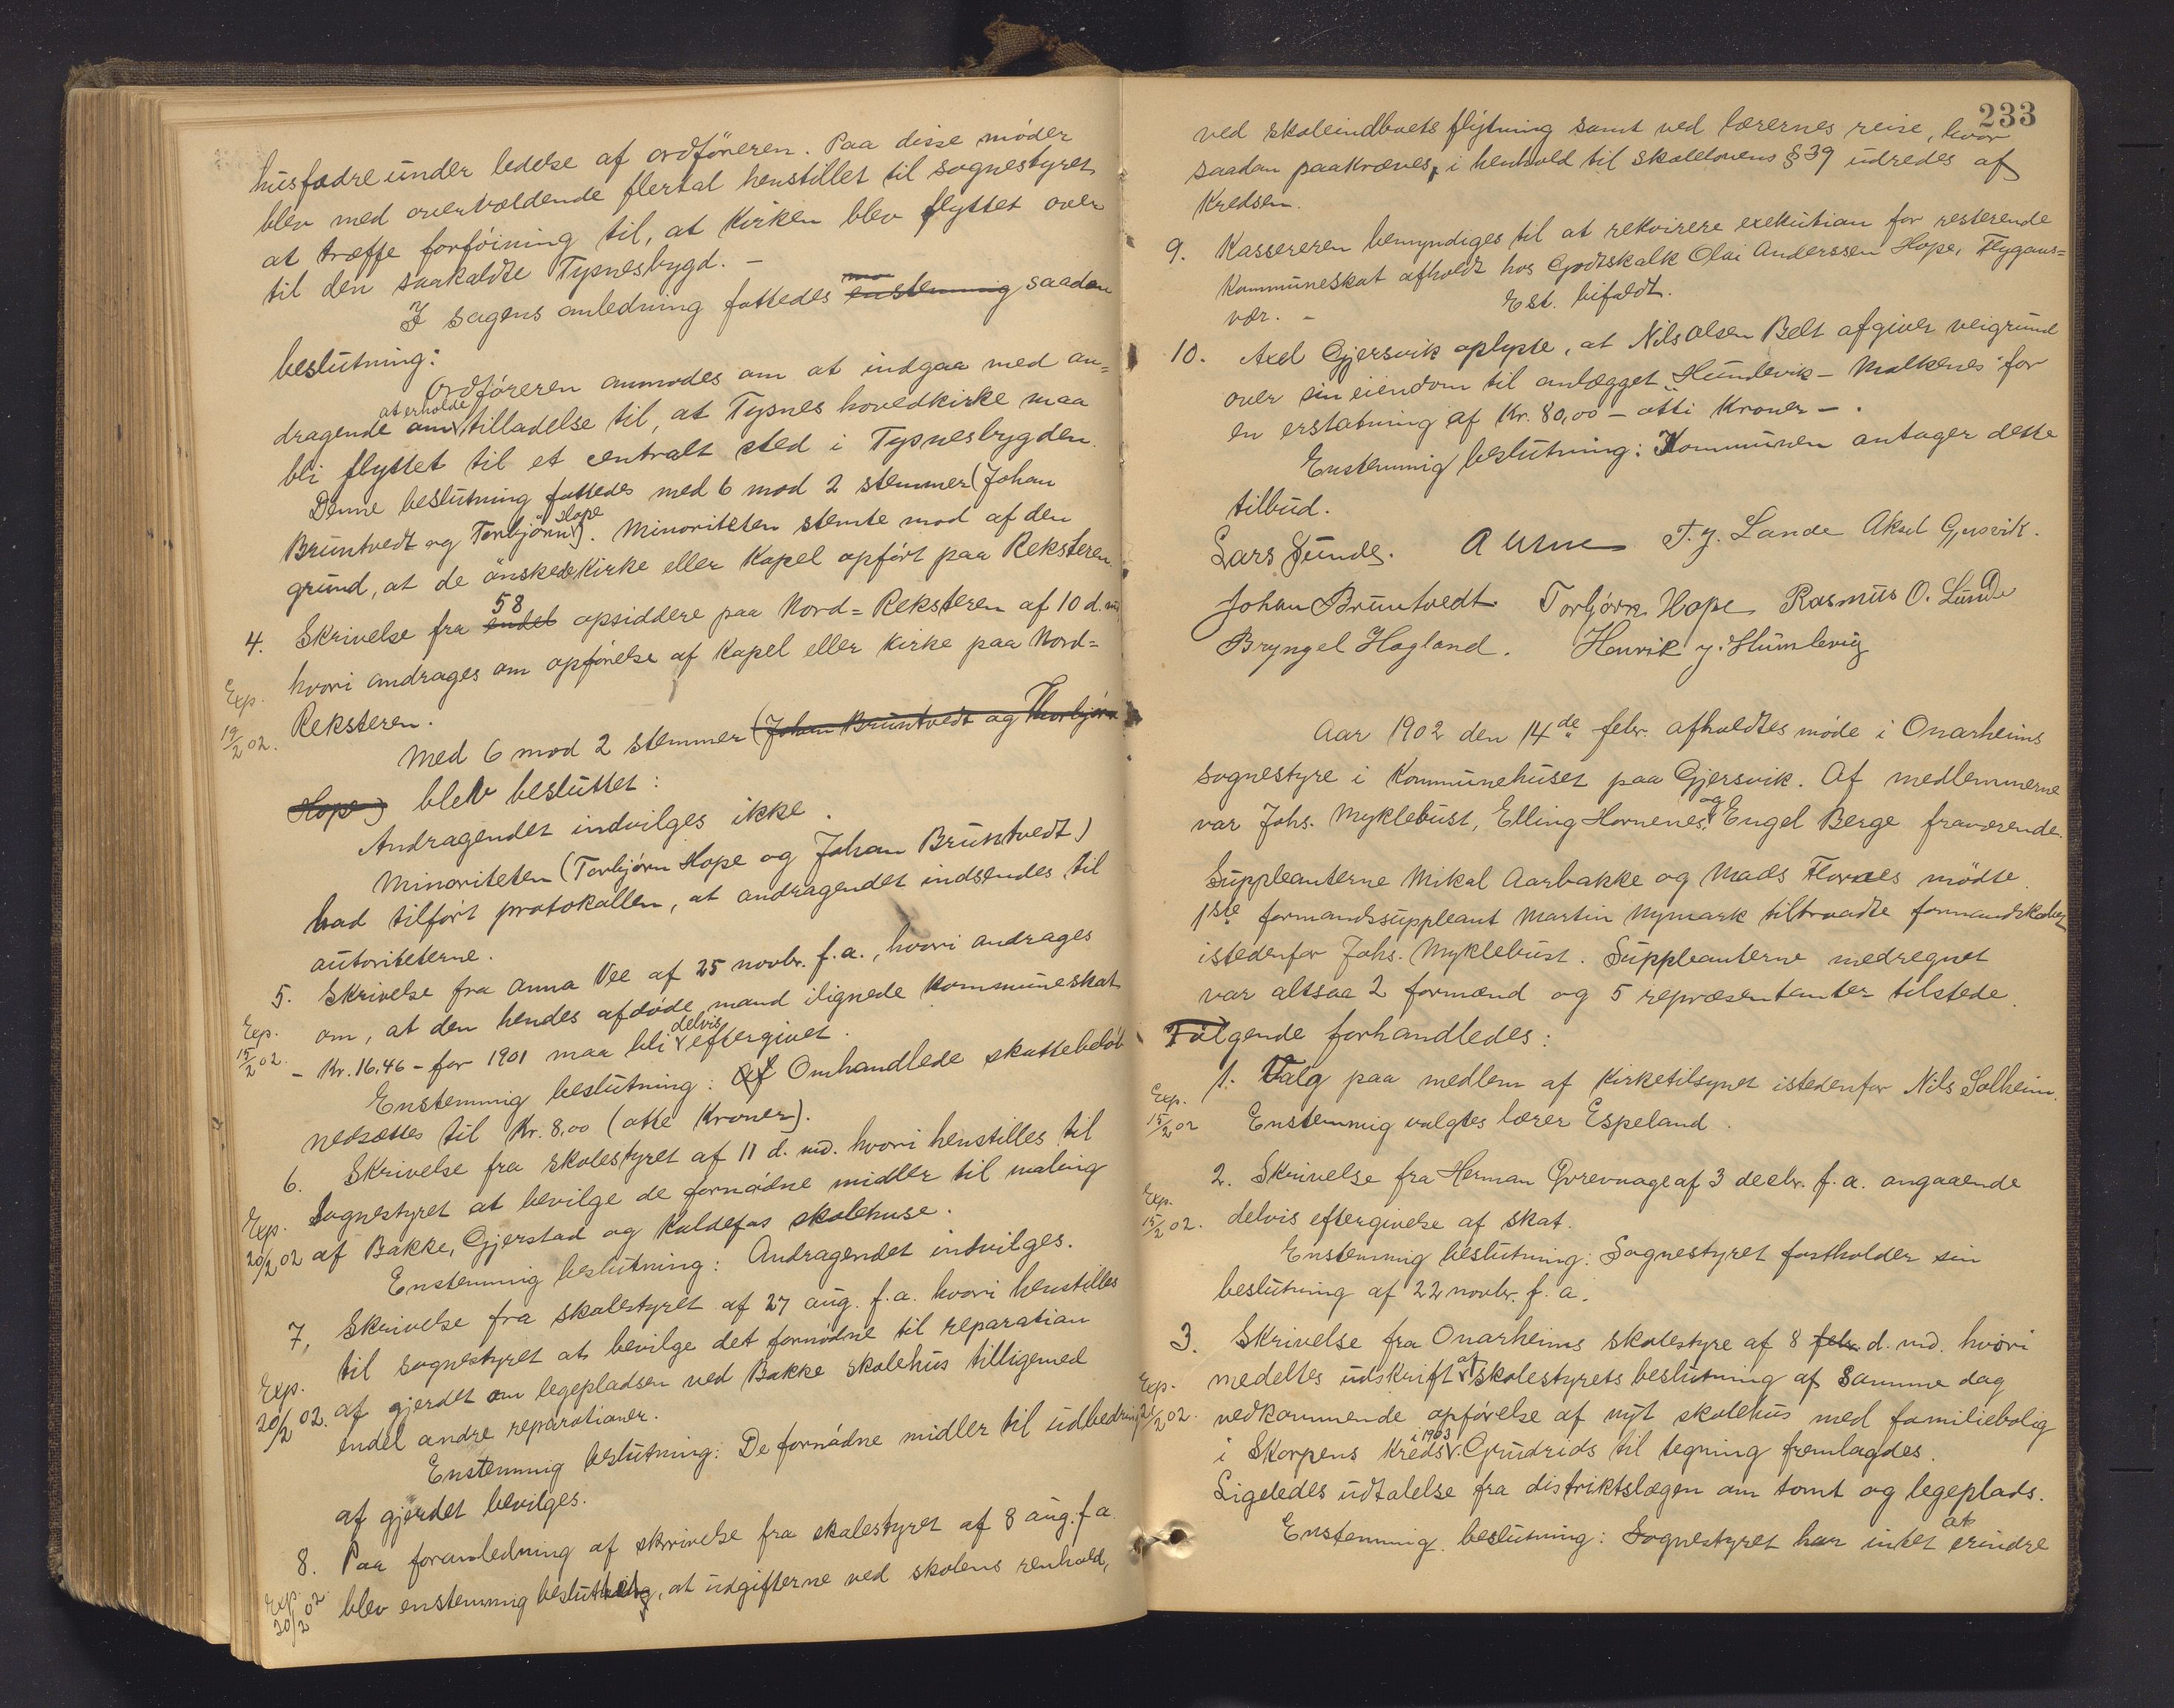 husfædre under ledelse af ordföreren. Paa disse möder
blev med overvældende flertal henstillet til sognestyret
at træffe forföining til, at Kirken blev flyttet over
til den saakaldte Tysnesbygd. —
I sagens anledning fattedes enstemmig saadan
beslutning:
Ordföreren anmodes om at indgaa med an=
dragende om at erholde tilladelse til, at Tysnes hovedkirke maa
bli flyttet til et centralt sted i Tysnesbygden.
Denne beslutning fattedes med 6 mod 2 stemmer (Johan
Bruntvedt og Torbjörn Hope). Minoriteten stemte mod af den
grund, at de önskede Kirke eller Kapel opfört paa Reksteren.
4. Skrivelse fra endel 58 opsiddere paa Nord=Reksteren af 10 d. md.
hvori andrages om opförelse af Kapel eller Kirke paa Nord=
Exp. 19/2 02. Reksteren.
Med 6 mod 2 stemmer (Johan Bruntvedt og Thorbjörn
Hope) blev besluttet:
Andragendet indvilges ikke.
Minoriteten (Torbjörn Hope og Johan Bruntvedt)
bad tilfört protokollen, at andragendet indsendes til
autoriteterne.
5. Skrivelse fra Anna Vee af 25 novbr. f.a., hvori andrages
Exp. 15/2 02. om, at den hendes afdöde mand ilignede Kommuneskat
– Kr. 16,46 – for 1901 maa bli delvis eftergivet.
Enstemmig beslutning: Af Omhandlede skattebelöb
nedsættes til Kr. 8,00 (otte Kroner).
6. Skrivelse fra skolestyret af 11 d. md. hvori henstilles til
Exp. 20/2 02 Sognestyret at bevilge de fornödne midler til maling
af Bakke, Gjerstad og Kaldefos skolehuse.
Enstemmig beslutning: Andragendet indvilges.
7, Skrivelse fra skolestyret af 27 aug. f.a. hvori henstilles
til sognestyret at bevilge det fornödne til reparation
Exp. 20/2 02. af gjerdet om legepladsen ved Bakke skolehus tilligemed
endel andre reparationer.
Enstemmig beslutning: De fornödne midler til udbedring
af gjerdet bevilges.
8. Paa foranledning af skrivelse fra skolestyret af 8 aug. f.a.
Exp. 20/2 02. blev enstemmig besluttet, at udgifterne ved skolens renhold,
233
ved skoleindboets flytning samt ved lærernes reise, hvor
saadan paakræves, i henhold til skolelovens § 39 udredes af
Kredsen.
9. Kassereren bemyndiges til at rekvirere exekution for resterende
Kommuneskat afholdt hos Godtskalk Olai Anderssen Hope, Flygans=
vær. – Est. bifaldt.
10. Axel Gjersvik oplyste, at Nils Olsen Belt afgiver veigrund
over sin eiendom til anlægget "Hundevik – Malkenes" for
en erstatning af Kr. 80,00 – otti Kroner –.
Enstemmig beslutning: Kommunen antager dette
tilbud.
Lars Sunde. A Urne T. J. Lande Aksel Gjersvik.
Johan Bruntvedt Torbjörn Hope Rasmus O. Lunde
Bryngel Hagland. Henrik J. Humlevig
Aar 1902 den 14de febr. afholdtes möde i Onarheims
sognestyre i Kommunehuset paa Gjersvik. Af medlemmerne
var Johs. Myklebust, Elling Hornenes og Engel Berge fraværende.
Suppleanterne Mikal Aarbakke og Mads Flornes mödte.
1ste formandssuppleant Martin Nymark tiltraadte formandskabet
istedenfor Johs. Myklebust. Suppleanterne medregnet
var altsaa 2 formænd og 5 repræsentanter tilstede.
Fölgende forhandledes:
Exp. 15/2 02 1. Valg paa medlem af Kirketilsynet istedenfor Nils Solheim.
Enstemmig valgtes lærer Espeland.
2. Skrivelse fra Herman Qvrevaage af 3 decbr. f.a. angaaende
Exp. 15/2 02. delvis eftergivelse af skat.
Enstemmig beslutning: Sognestyret fastholder sin
beslutning af 22 novbr. f.a.
3. Skrivelse fra Onarheims skolestyre af 8 febr. d. md. hvori
Exp. 21/2 02. meddeltes udskrift af skolestyrets beslutning af samme dag
vedkommende opförelse af nyt skolehus med familiebolig
i Skorpens Kreds i 1903. Grudrids til tegning fremlagdes.
Ligeledes udtalelse fra distriktslægen om tomt og legeplads.
Enstemmig beslutning: Sognestyret har intet at erindre